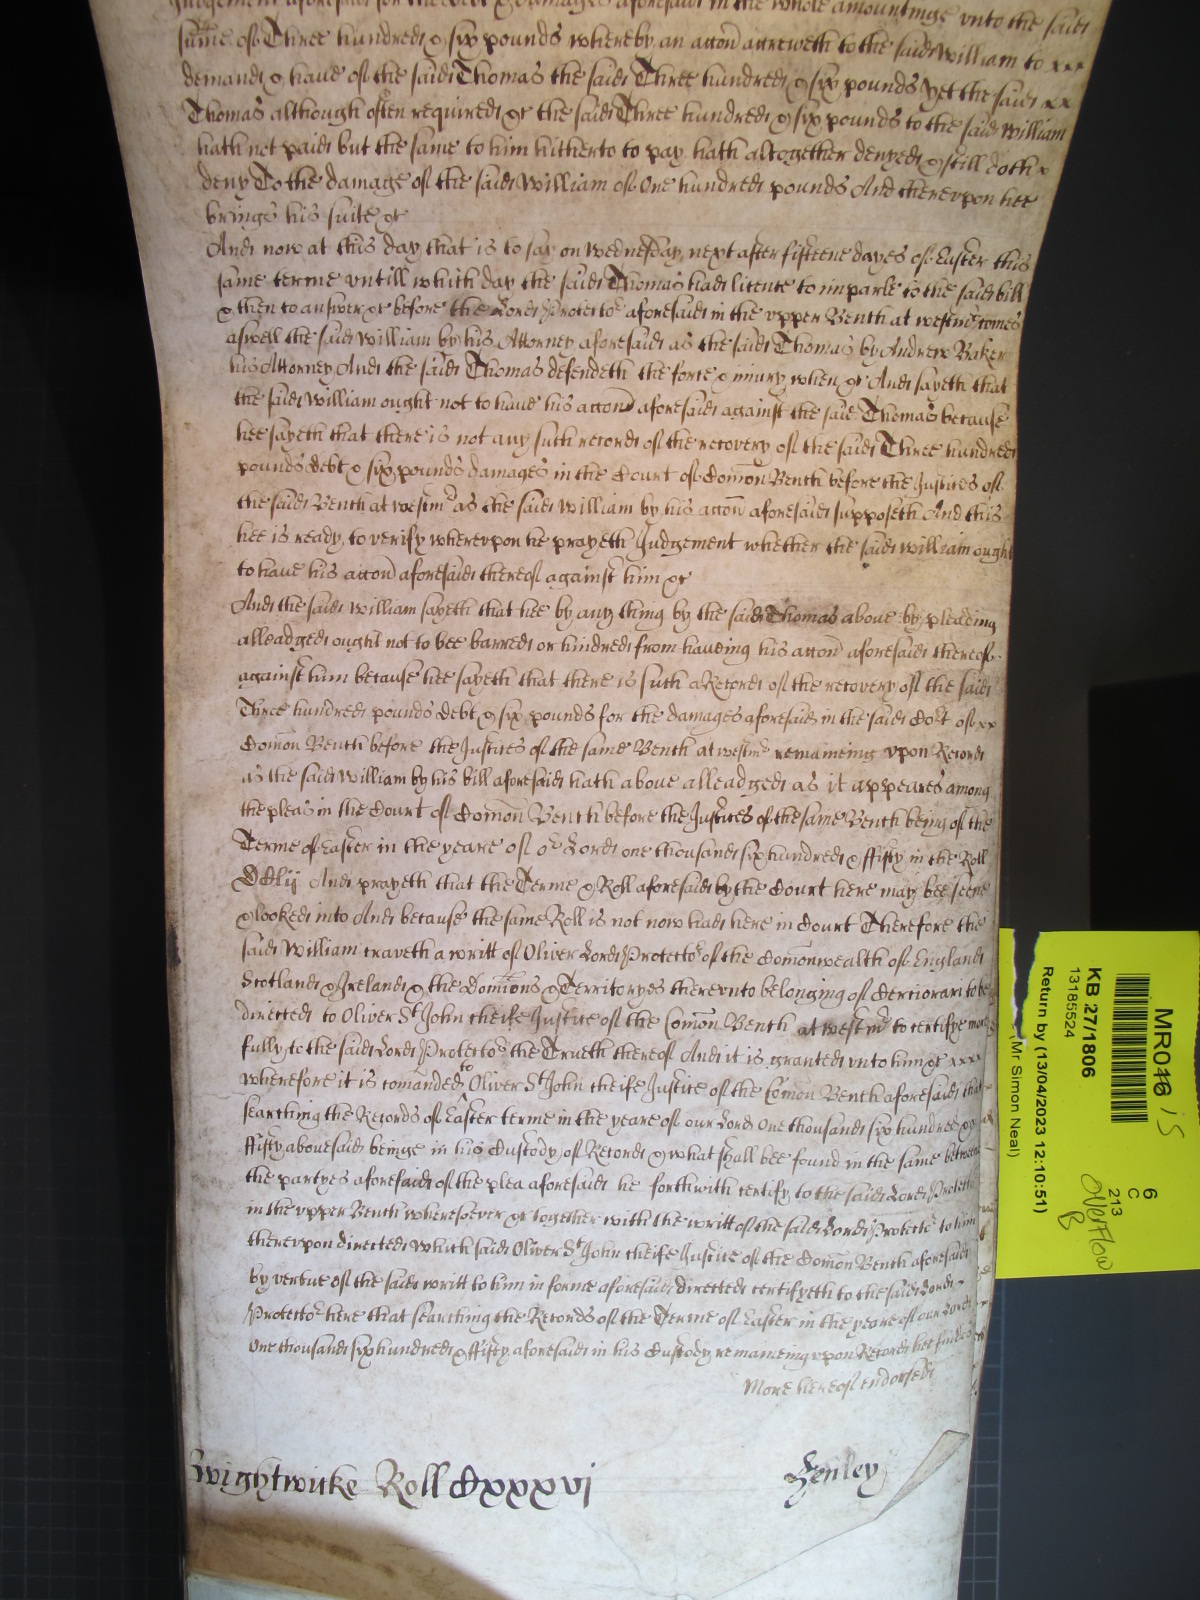 Judgement aforesaid for the debt & damages aforesaid in the whole amountinge vnto the said
sume of Three hundred & six pounds whereby an accon accreweth to the said William to xxx
demand & haue of the said Thomas the said Three hundred & six pounds yet the said xx
Thomas although often required &c the said Three hundred & six pounds to the said William
hath not paid but the same to him hitherto to pay hath altogether denyed & still doth x
deny To the damage of the said William of One hundred pounds And therevpon hee
brings his suite &c
And now at this day that is to say on Wednesday next after fifteene dayes of Easter this
same terme vntill which day the said Thomas had licence to imparle to the said bill
& then to answer &c before the Lord Protector aforesaid in the vpper Bench at westmr comes
aswell the said William by his Attorney aforesaid as the said Thomas by Andrew Baker
his Attorney And the said Thomas defendeth the force & iniury when &c And sayeth that
the said William ought not to haue his accon aforesaid against the said Thomas because
hee sayeth that there is not any such record of the recovery of the said Three hundred
pounds debt & six pounds damages in the Court of Comon Bench before the Justices of
the said Bench at westmr as the said William by his accon aforesaid supposeth And this
hee is ready to verify wherevpon he prayeth Judgement whether the said William ought
to haue his accon aforesaid thereof against him &c
And the said William sayeth that hee by any thing by the said Thomas aboue by pleading
alleadged ought not to bee barred or hindred from haueing his accon aforesaid thereof
against him because hee sayeth that there is such a Record of the recovery of the said
Three hundred pounds debt & six pounds for the damages aforesaid in the said Cort of xx
Comon Bench before the Justices of the same Bench at westmr remaineing vpon Record
as the said William by his bill aforesaid hath aboue alleadged as it appeares among
the pleas in the Court of Comon Bench before the Justices of the same Bench being of the
Terme of Easter in the yeare of or Lord one thousand six hundred & ffifty in the Roll
CClij And prayeth that the Terme & Roll aforesaid by the Court here may bee seene
& looked into And because the same Roll is not now had here in Court Therefore the
said William craveth a writt of Oliver Lord Protector of the Comonwealth of England
Scotland & Ireland & the Domions & Territoryes therevnto belonging of Certiorari to be
directed to Oliver St John cheife Justice of the Comon Bench at westmr to certifye more
fully to the said Lord Protector the Trueth thereof And it is granted vnto him &c xxxx
wherefore it is comanded to Oliver St John cheife Justice of the Comon Bench aforesaid that
searching the Records of Easter terme in the yeare of our Lord One thousand six hundred &
ffifty abouesaid beinge in his Custody of Record & what shall bee found in the same betweene
the partyes aforesaid of the plea aforesaid he forthwith certify to the said Lord Protector
in the vpper Bench wheresoever &c together with the writt of the said Lord Protector to him
therevpon directed Which said Oliver St John cheife Justice of the Comon Bench aforesaid
by vertue of the said writt to him in forme aforesaid directed certifyeth to the said Lord
Protector here that searching the Records of the Terme of Easter in the yeare of our Lord
One thousand six hundred & ffifty aforesaid in his Custody remaineing vpon Record hee findes
More hereof endorsed
Wightwicke Roll Cxxxvi Henley
MR046 15
KB 27/1806
13185524
Return by (13/04/2023 12:10:51)
(Mr Simon Neal)
6
C
213
Overflow
B